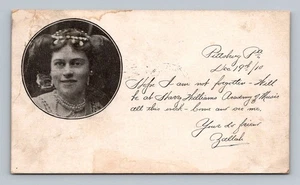 Pittsburg Pa
Dec 19th/10
I hope I am not forgotten - Will
be at Harry Williams Academy of Music
all this week - Come and see me.
Your old friend
Zallah